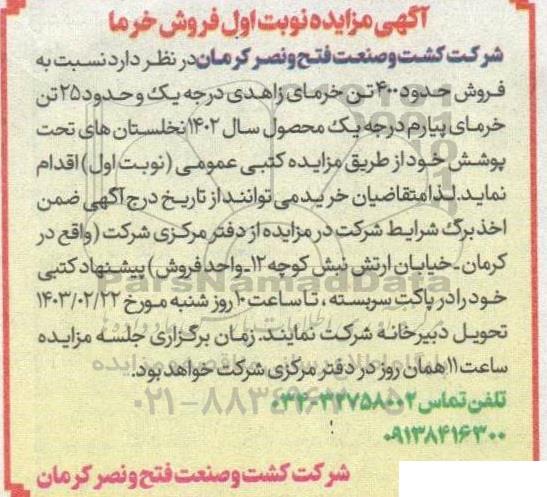 آگهی مزایده نوبت اول فروش خرما
شرکت کشت و صنعت فتح و نصر کرمان در نظر دارد نسبت به
فروش حدود ۴۰۰ تن خرمای زاهدی درجه یک و حدود ۲۵ تن
خرمای پیارم درجه یک محصول سال ۱۴۰۲ نخلستان های تحت
پوشش خود از طریق مزایده کتبی عمومی (نوبت اول) اقدام
نماید. لذا متقاضیان خرید می توانند از تاریخ درج آگهی ضمن
اخذ برگ شرایط شرکت در مزایده از دفتر مرکزی شرکت (واقع در
کرمان ـ خیابان ارتش نبش کوچه ۱۲ ـ واحد فروش) پیشنهاد کتبی
خود را در پاکت سربسته ، تا ساعت ۱۰ روز شنبه مورخ ۱۴۰۳/۰۲/۲۲
تحویل دبیرخانه شرکت نمایند. زمان برگزاری جلسه مزایده
ساعت ۱۱ همان روز در دفتر مرکزی شرکت خواهد بود.
تلفن تماس ۰۳۴-۳۲۷۵۸۰۰۲
۰۹۱۳۸۴۱۶۳۰۰
شرکت کشت و صنعت فتح و نصر کرمان
ParsNamadData